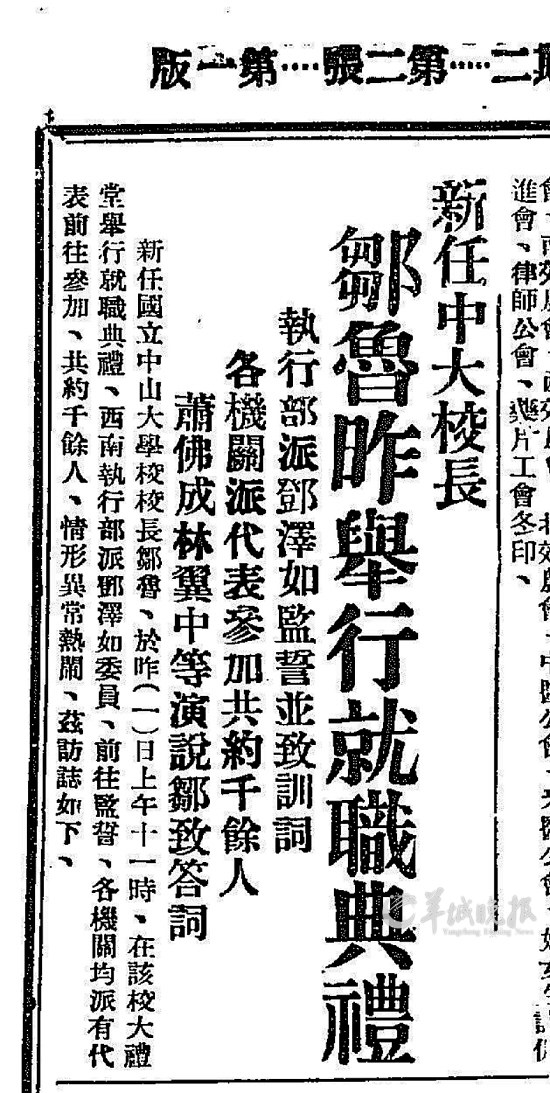 版一第…張二第…二期
進會、律師公會、藥片工會冬印、
新任中大校長
鄒魯昨舉行就職典禮
執行部派鄧澤如監誓並致訓詞
各機關派代表參加共約千餘人
蕭佛成林翼中等演說鄒致答詞
新任國立中山大學校校長鄒魯、於昨(一)日上午十一時、在該校大禮
堂舉行就職典禮、西南執行部派鄧澤如委員、前往監誓、各機關均派有代
表前往參加、共約千餘人、情形異常熱鬧、茲訪誌如下、
羊城晚報